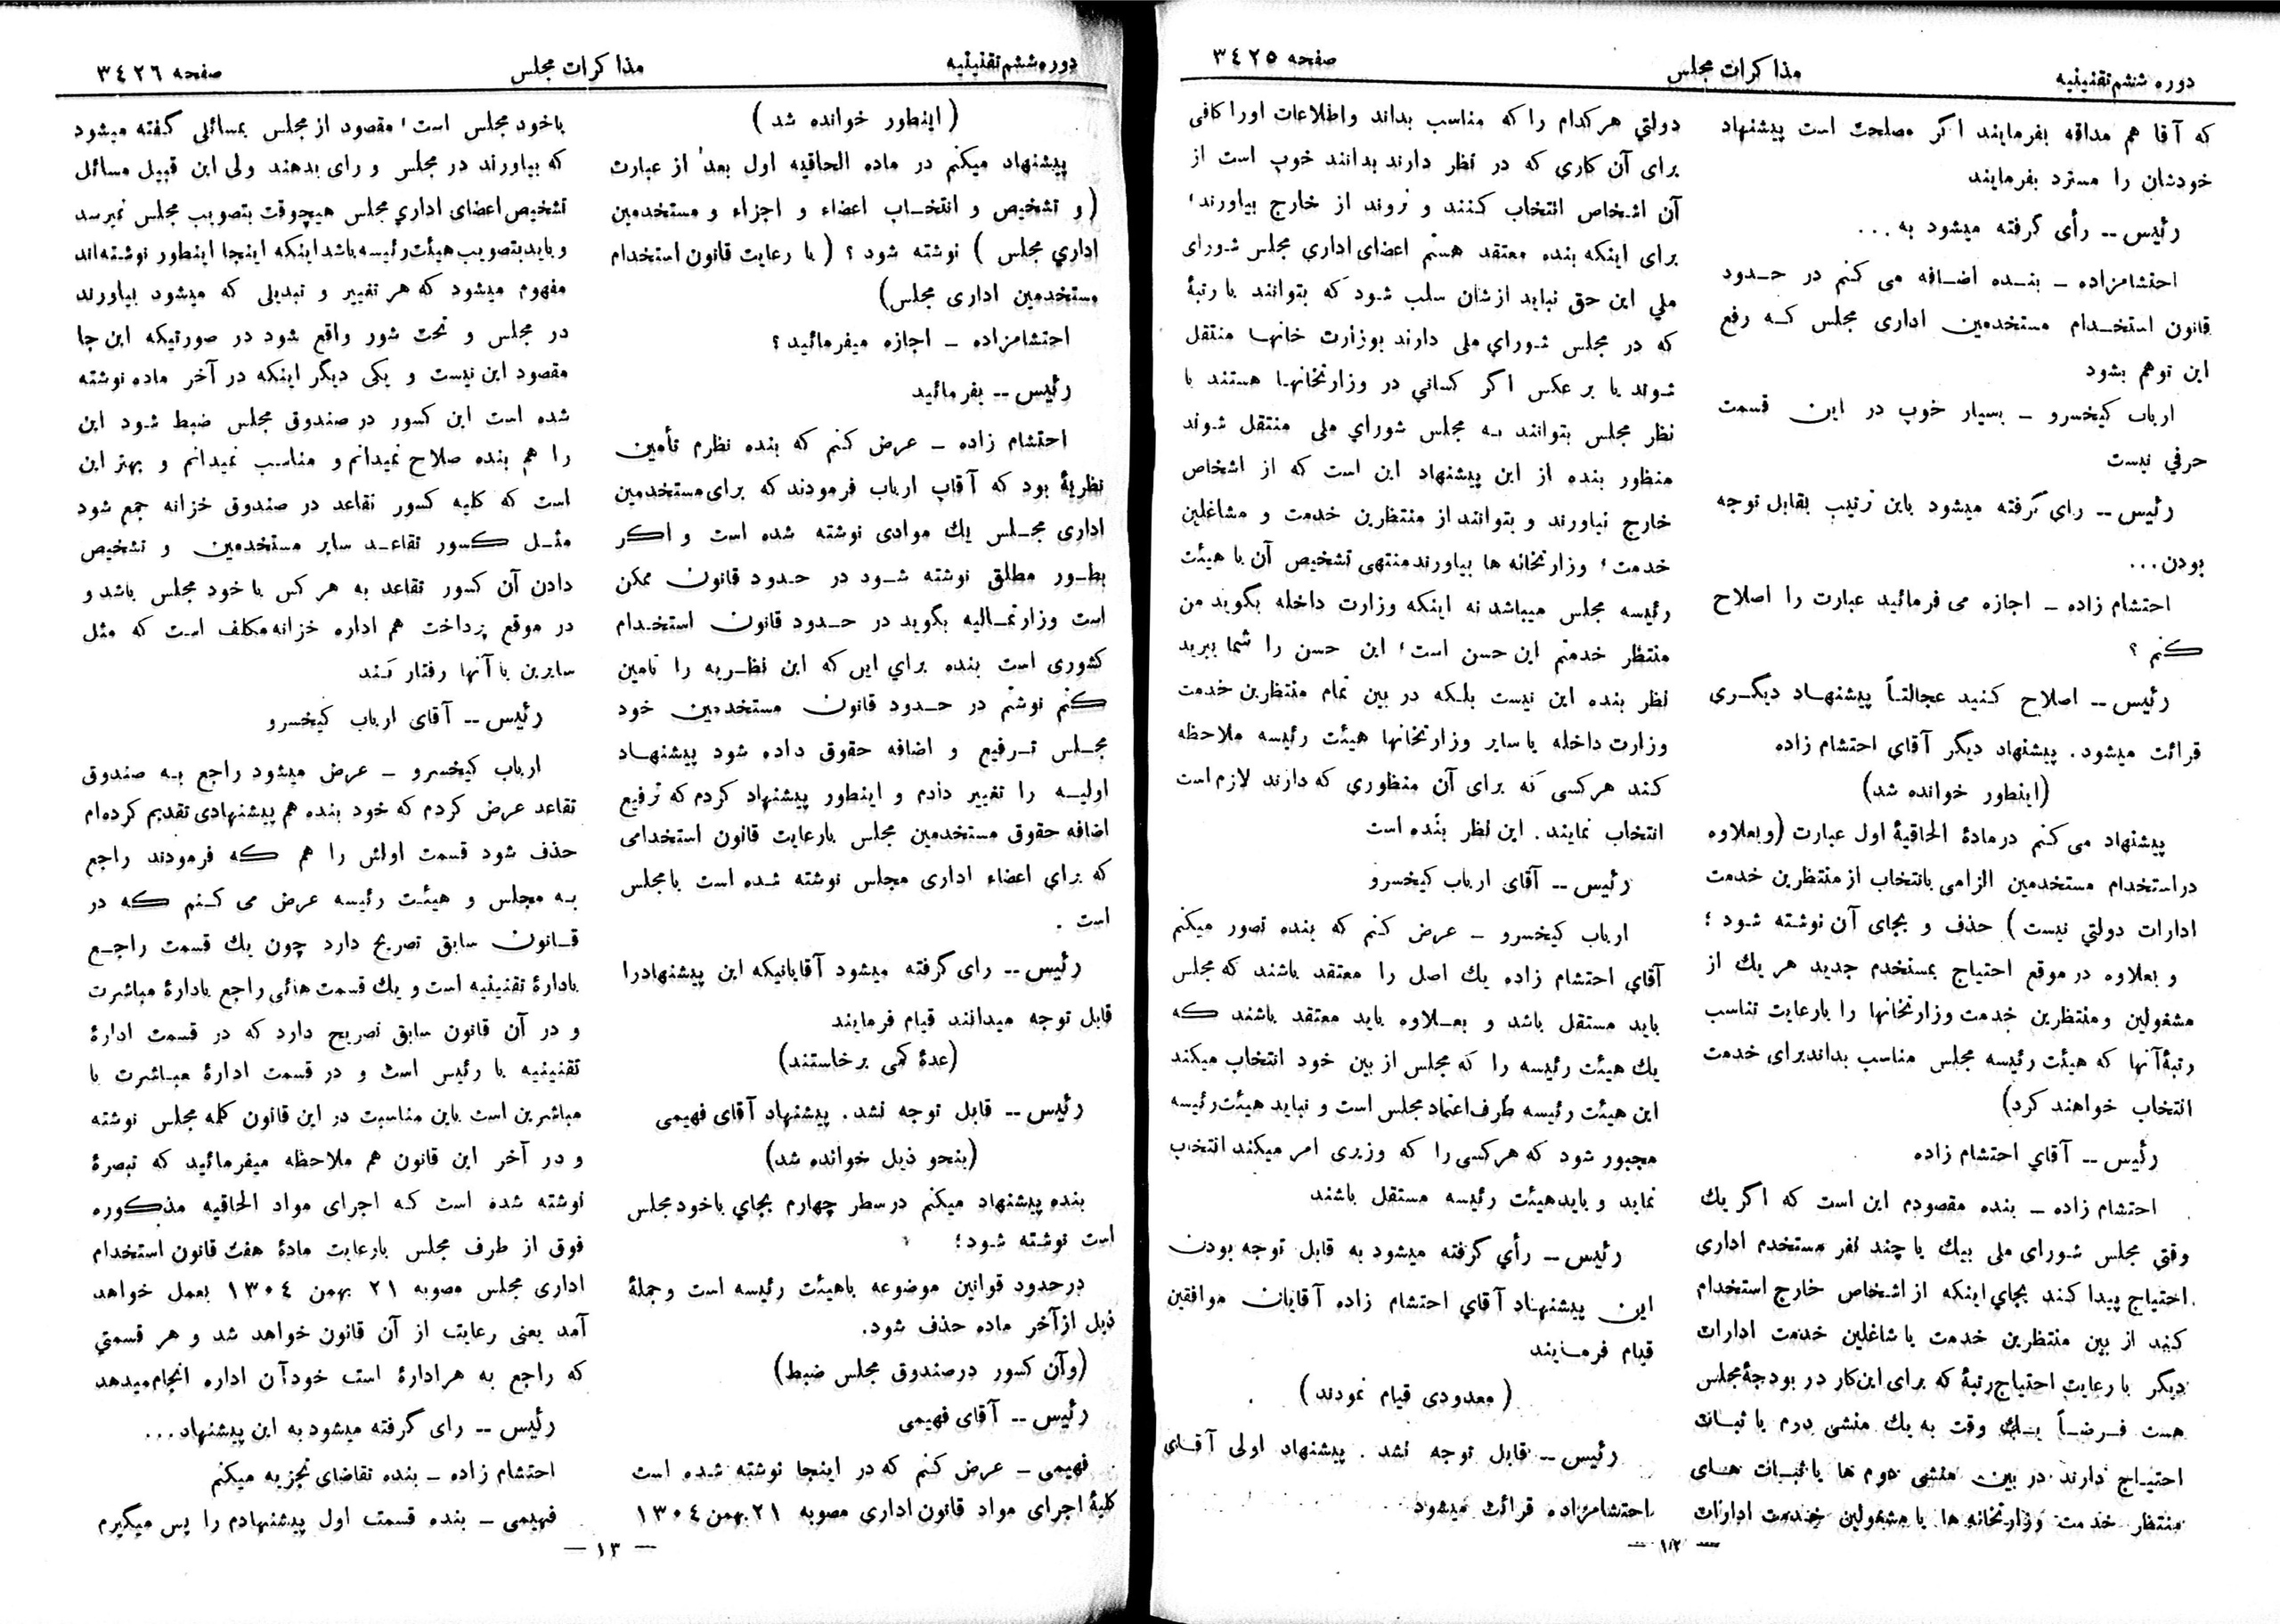 دوره ششم تقنینیه
مذاکرات مجلس
صفحه ۳٤۲٥
که آقا هم مداقه بفرمایند اگر مصلحت است پیشنهاد
خودشان را مسترد بفرمایند
رئیس -- رأی گرفته میشود به ...
احتشامزاده - بنده اضافه می کنم در حدود
قانون استخدام مستخدمین اداری مجلس که رفع
این توهم بشود
ارباب کیخسرو - بسیار خوب در این قسمت
حرفي نیست
رئیس -- رای گرفته میشود باین ترتیب بقابل توجه
بودن...
احتشام زاده - اجازه می فرمائید عبارت را اصلاح
کنم ؟
رئیس -- اصلاح کنید عجالتاً پیشنهاد دیگری
قرائت میشود. پیشنهاد دیگر آقاي احتشام زاده
(اینطور خوانده شد)
پیشنهاد می کنم درمادهٔ الحاقیهٔ اول عبارت (وبعلاوه
دراستخدام مستخدمین الزامی بانتخاب از منتظرین خدمت
ادارات دولتي نیست) حذف و بجای آن نوشته شود ؛
و بعلاوه در موقع احتیاج بمستخدم جدید هر یك از
مشغولین ومنتظرین خدمت وزارتخانها را بارعایت تناسب
رتبهٔ آنها که هیئت رئیسه مجلس مناسب بداندبرای خدمت
انتخاب خواهند کرد)
رئیس -- آقاي احتشام زاده
احتشام زاده - بنده مقصودم این است که اگر یك
وقتي مجلس شورای ملی بیك یا چند نفر مستخدم اداری
احتیاج پیدا کند بجاي اینکه از اشخاص خارج استخدام
کند از بین منتظرین خدمت یا شاغلین خدمت ادارات
دیگر با رعایت احتیاج رتبهٔ که برای این کار در بودجهٔ مجلس
هست فرضاً یك وقت به یك منشی دوم یا ثبات
احتیاج دارند در بین منشی دوم ها یا ثبات های
منتظر خدمت وزارتخانه ها یا مشغولین خدمت ادارات
دولتي هرکدام را که مناسب بداند واطلاعات اورا کافی
برای آن کاری که در نظر دارند بدانند خوب است از
آن اشخاص انتخاب کنند و نروند از خارج بیاورند؛
برای اینکه بنده معتقد هستم اعضای اداري مجلس شورای
ملي این حق نباید ازشان سلب شود که بتوانند با رتبهٔ
که در مجلس شوراي ملی دارند بوزارت خانها منتقل
شوند یا بر عکس اگر کساني در وزارتخانها هستند با
نظر مجلس بتوانند به مجلس شوراي ملی منتقل شوند
منظور بنده از این پیشنهاد این است که از اشخاص
خارج نیاورند و بتوانند از منتظرین خدمت و مشاغلین
خدمت؛ وزارتخانه ها بیاورند منتهی تشخیص آن با هیئت
رئیسه مجلس میباشد نه اینکه وزارت داخله بگوید من
منتظر خدمتم این حسن است؛ این حسن را شما ببرید
نظر بنده این نیست بلکه در بین تمام منتظرین خدمت
وزارت داخله یا سایر وزارتخانها هیئت رئیسه ملاحظه
کند هرکسی که برای آن منظوري که دارند لازم است
انتخاب نمایند. این نظر بنده است
رئیس -- آقای ارباب کیخسرو
ارباب کیخسرو - عرض کنم که بنده تصور میکنم
آقاي احتشام زاده یك اصل را معتقد باشند که مجلس
باید مستقل باشد و بعلاوه باید معتقد باشند که
یك هیئت رئیسه را که مجلس از بین خود انتخاب میکند
این هیئت رئیسه طرف اعتماد مجلس است و نباید هیئت رئیسه
مجبور شود که هرکسی را که وزیری امر میکند انتخاب
نماید و باید هیئت رئیسه مستقل باشند
رئیس - رأي گرفته میشود به قابل توجه بودن
این پیشنهاد آقاي احتشام زاده آقایان موافقین
قیام فرمایند
(معدودی قیام نمودند)
رئیس -- قابل توجه نشد . پیشنهاد اولی آقای
احتشامزاده قرائت میشود
— ۱۲ —
دوره ششم تقنینیه
مذاکرات مجلس
صفحه ۳٤۲٦
(اینطور خوانده شد)
پیشنهاد میکنم در ماده الحاقیه اول بعد از عبارت
(و تشخیص و انتخاب اعضاء و اجزاء و مستخدمین
اداري مجلس) نوشته شود ؟ (با رعایت قانون استخدام
مستخدمین اداری مجلس)
احتشامزاده - اجازه میفرمائید ؟
رئیس -- بفرمائید
احتشام زاده - عرض کنم که بنده نظرم تأمین
نظریهٔ بود که آقای ارباب فرمودند که برای مستخدمین
اداری مجلس یك موادی نوشته شده است و اگر
بطور مطلق نوشته شود در حدود قانون ممکن
است وزارتمالیه بگوید در حدود قانون استخدام
کشوری است بنده براي این که این نظریه را تامین
کنم نوشتم در حدود قانون مستخدمین خود
مجلس ترفیع و اضافه حقوق داده شود پیشنهاد
اولیه را تغییر دادم و اینطور پیشنهاد کردم که ترفیع
اضافه حقوق مستخدمین مجلس بارعایت قانون استخدامی
که براي اعضاء اداری مجلس نوشته شده است بامجلس
است .
رئیس -- رای گرفته میشود آقایانیکه این پیشنهادرا
قابل توجه میدانند قیام فرمایند
(عدهٔ کمی برخاستند)
رئیس -- قابل توجه نشد. پیشنهاد آقای فهیمی
(بنحو ذیل خوانده شد)
بنده پیشنهاد میکنم درسطر چهارم بجاي باخود مجلس
است نوشته شود؛
درحدود قوانین موضوعه باهیئت رئیسه است وجملهٔ
ذیل ازآخر ماده حذف شود.
(وآن کسور درصندوق مجلس ضبط)
رئیس -- آقای فهیمی
فهیمی - عرض کنم که در اینجا نوشته شده است
کلیهٔ اجرای مواد قانون اداری مصوبه ۲۱ بهمن ۱۳۰٤
باخود مجلس است؛ مقصود از مجلس بمسائلی گفته میشود
که بیاورند در مجلس و رای بدهند ولی این قبیل مسائل
تشخیص اعضای اداري مجلس هیچوقت بتصویب مجلس نمیرسد
و باید بتصویب هیئت رئیسه باشد اینکه اینجا اینطور نوشته اند
مفهوم میشود که هر تغییر و تبدیلی که میشود بیاورند
در مجلس و تحت شور واقع شود در صورتیکه این جا
مقصود این نیست و یکی دیگر اینکه در آخر ماده نوشته
شده است این کسور در صندوق مجلس ضبط شود این
را هم بنده صلاح نمیدانم و مناسب نمیدانم و بهتر این
است که کلیه کسور تقاعد در صندوق خزانه جمع شود
مثل کسور تقاعد سایر مستخدمین و تشخیص
دادن آن کسور تقاعد به هر کس با خود مجلس باشد و
در موقع پرداخت هم اداره خزانه مکلف است که مثل
سایرین با آنها رفتار کند
رئیس -- آقای ارباب کیخسرو
ارباب کیخسرو - عرض میشود راجع به صندوق
تقاعد عرض کردم که خود بنده هم پیشنهادی تقدیم کرده ام
حذف شود قسمت اولش را هم که فرمودند راجع
به مجلس و هیئت رئیسه عرض می کنم که در
قانون سابق تصریح دارد چون یك قسمت راجع
بادارهٔ تقنینیه است و یك قسمت هائی راجع بادارهٔ مباشرت
و در آن قانون سابق تصریح دارد که در قسمت ادارهٔ
تقنینیه با رئیس است و در قسمت ادارهٔ مباشرت با
مباشرین است باین مناسبت در این قانون کلمه مجلس نوشته
و در آخر این قانون هم ملاحظه میفرمائید که تبصرهٔ
نوشته شده است که اجرای مواد الحاقیه مذکوره
فوق از طرف مجلس بارعایت مادهٔ هفت قانون استخدام
اداری مجلس مصوبه ۲۱ بهمن ۱۳۰٤ بعمل خواهد
آمد یعنی رعایت از آن قانون خواهد شد و هر قسمتي
که راجع به هر ادارهٔ است خودآن اداره انجام میدهد
رئیس -- رای گرفته میشود به این پیشنهاد...
احتشام زاده - بنده تقاضای تجزیه میکنم
فهیمی - بنده قسمت اول پیشنهادم را پس میگیرم
— ۱۳ —